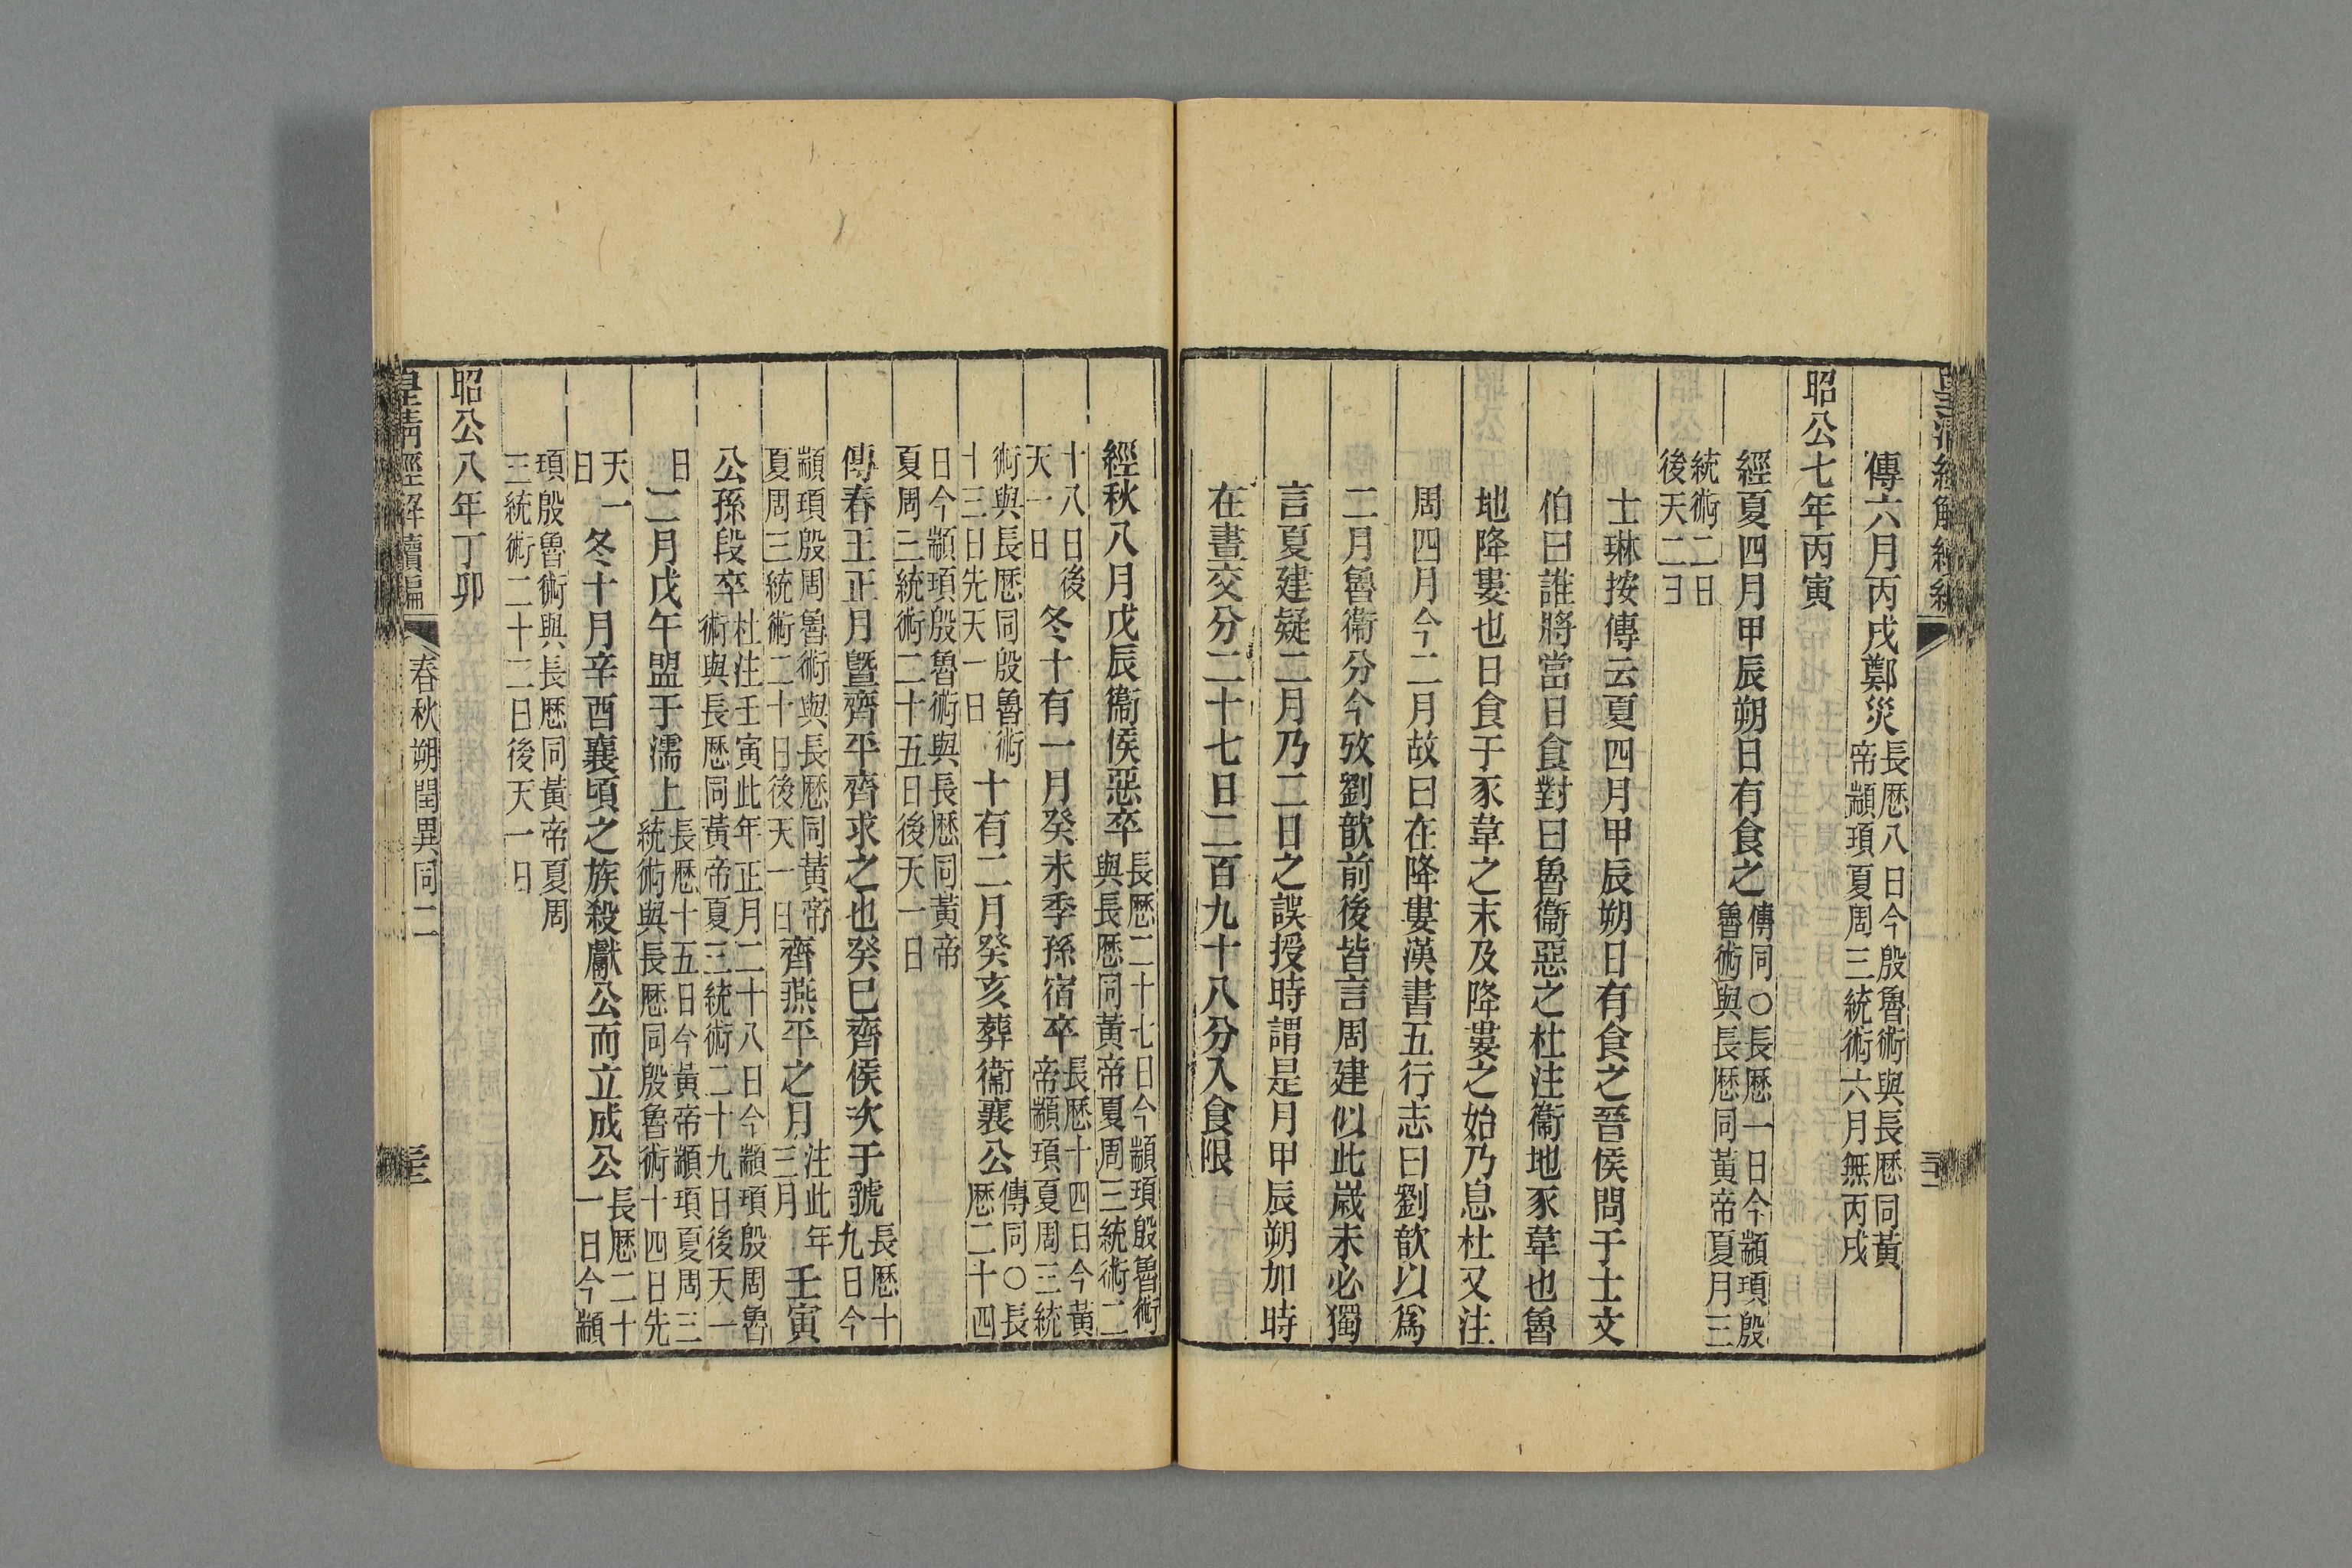 傳六月丙戌鄭災長厯八日今殷魯術與長厯同黃帝顓頊夏周三統術六月無丙戌
昭公七年丙寅
經夏四月甲辰朔日有食之傳同○長厯一日今顓頊殷魯術與長厯同黃帝夏月三
統術二日後天二日
士琳按傳云夏四月甲辰朔日有食之晉侯問于士文
伯曰誰將當日食對曰魯衞惡之杜注衞地豕韋也魯
地降婁也日食于豕韋之末及降婁之始乃息杜又注
周四月今二月故曰在降婁漢書五行志曰劉歆以爲
二月魯衞分今攷劉歆前後皆言周建似此嵗未必獨
言夏建疑二月乃二日之誤授時謂是月甲辰朔加時
在晝交分二十七日二百九十八分入食限
經秋八月戊辰衞侯惡卒長厯二十七日今顓頊殷魯術與長厯同黃帝夏周三統術二
十八日後天一日冬十有一月癸未季孫宿卒長厯十四日今黃帝顓頊夏周三統
術與長厯同殷魯術十三日先天一日十有二月癸亥葬衞襄公傳同○長厯二十四
日今顓頊殷魯術與長厯同黃帝夏周三統術二十五日後天一日
傳春王正月暨齊平齊求之也癸巳齊侯次于虢長厯十九日今
顓頊殷周魯術與長厯同黃帝夏周三統術二十日後天一日齊燕平之月注此年三月壬寅
公孫段卒杜注壬寅此年正月二十八日今顓頊殷周魯術與長厯同黃帝夏三統術二十九日後天一
日二月戊午盟于濡上長厯十五日今黃帝顓頊夏周三統術與長厯同殷魯術十四日先
天一日冬十月辛酉襄頃之族殺獻公而立成公長厯二十一日今顓
頊殷魯術與長厯同黃帝夏周三統術二十二日後天一日
昭公八年丁卯
皇清經解續編
春秋朔閏異同二